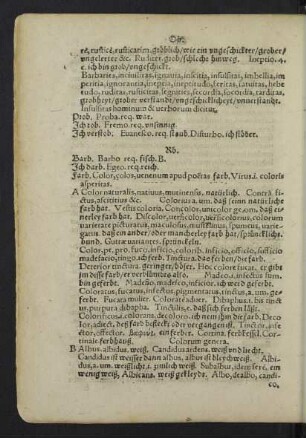 re, rusticè, rusticatim, gröblich, wie ein ungeschickter, grober,
ungelerter &c. Ruditer, grob, schlecht hinweg. Ineptio, 4.
e. ich bin grob, ungeschickt.
Barbaria, inciuilitas, ignauia, inscitia, insulsitas, imbellia, im
peritia, ignorantia, imperitia, ineptitudo, feritas, fatuitas, hebe
tudo, ruditas, rusticitas, segnities, socordia, tarditas,
grobheyt, grober verstandt, ungeschicklicheyt, unverstandt.
Insulsitas hominum & uerborum dicitur.
Prob. Proba. req. war.
Ich rob. Fremo. req. unsinnig.
Ich verstob. Euanesco. req. staub. Disturbo. ich stöber.
Barb. Barbo req. fisch. B.
Ich darb. Egeo. req. reich.
Farb. Color, colos, uenenum apud poëtas farb. Virus. coloris
asperitas.
A Color naturalis, natiuus, natürlich. Contrà. fi-
ctus, ascititius &c. Coloreus, a. um. daß seinn natürliche
farb hat. Versicoloria. Concolor, unicolor ge. om. daß ei-
nerley farb hat. Discolor, uersicolor, uersicolorius, colorum
varietate picturatus, maculosus, spumeus, varie-
gatus. daß ein ander, oder manderley farb hat, sprincklicht.
bund. Guttæ variantes, sprinckeln.
Color, pe. pro, fuco, inficio, colorib. inficio, officio, sufficio
madefacio, tingo, ich ferb. Tinctura. das ferben, die farb.
Deterior tinctura, geringer, böser. Hoc colore
den disse farb, er verblümbt also. Madeo, i. infectus sum,
bin geferbt. Madefio, madesco, inficior, ich wird geferbt.
Coloratus, fucatus, infectus, pigmentatus, tinctus, a, um. ge-
ferbt. Fucata mulier. Coloratè aduer. Dibaphus, i. bis tinct
us, purpura dibapha. Tinctilis, e. daß sich ferben läßt.
Colorificus. decoloro. ich nem jm die farb. Deco
lor, adiect. deß farb besteckt oder vergangen ist. Tinctor, infe
ctor, offector. ferber. Cortina, ferbkessel. Cor-
tinale ferbhauß. Colorum genera.
B Albus, albidus, weiß. Candidus ardens, weiß und liecht.
Candidus ist weisser dann albus, albus ist bleychweiß. Albi-
dus, a. um. weißlicht. i. zimlich weiß. Subalbus, idem fere, ein
wenig weiß. Albicans, weiß gekleydt. Albo, dealbo, candi-
co,